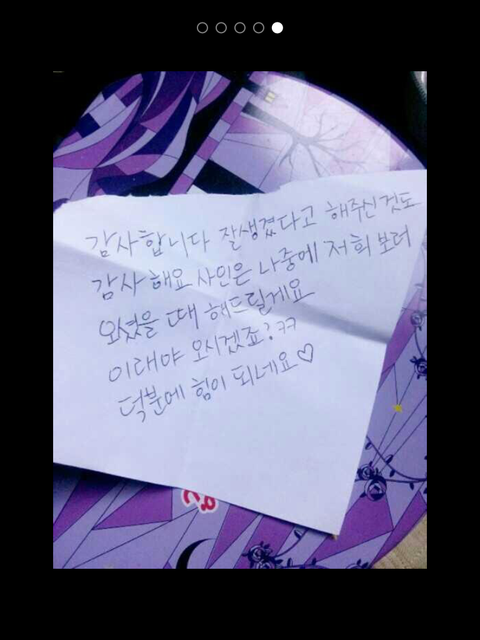 감사합니다 잘생겼다고 해주신것도
감사해요 사인은 나중에 저희 보러
오셨을 때 해드릴게요
이래야 오시겠죠?ㅋㅋ
덕분에 힘이 되네요♡